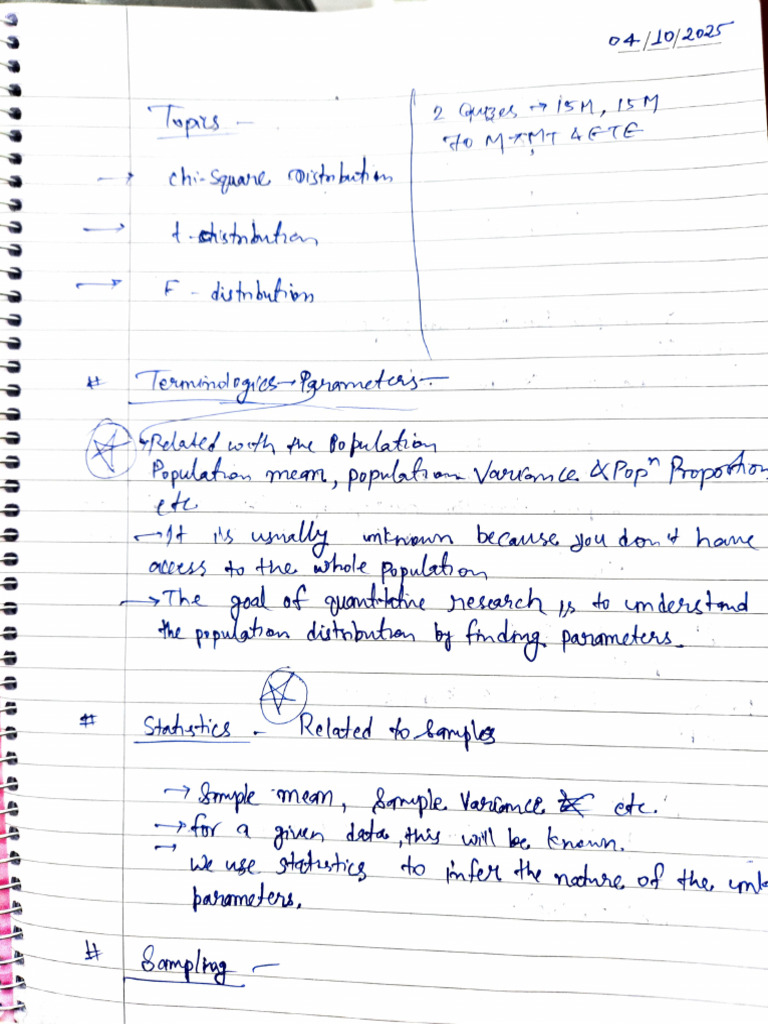 04/10/2025
Topics -
2 Quizzes → 15M, 15M
70 M → MT & ETE
→ chi-square Distribution
→ t-distribution
→ F - distribution
# Terminologies → Parameters -
→ Related with the Population
Population mean, population Variance & Popⁿ Proportion
etc
→ It is usually unknown because you don't have
access to the whole population
→ The goal of quantitative research is to understand
the population distribution by finding parameters.
# Statistics - Related to Samples
→ Sample mean, Sample Variance etc.
→ for a given data, this will be known.
→ We use statistics to infer the nature of the
parameters.
# Sampling -